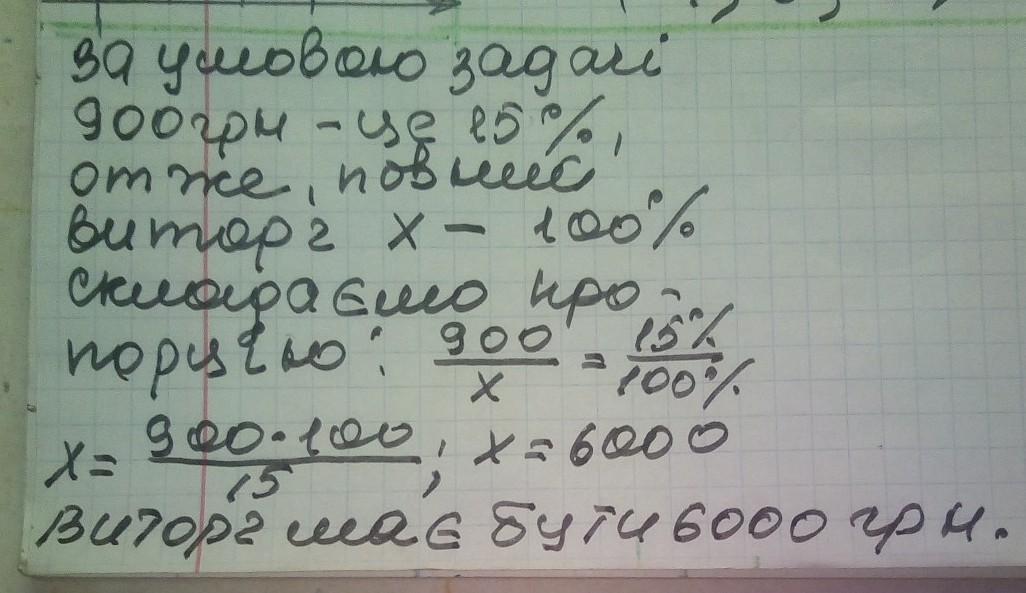 за умовою задачі
900грн - це 15%,
отже, повний
виторг x - 100%
складаємо про-
порцію: 900/x = 15%/100%
x = 900·100/15; x = 6000
Виторг має бути 6000 грн.